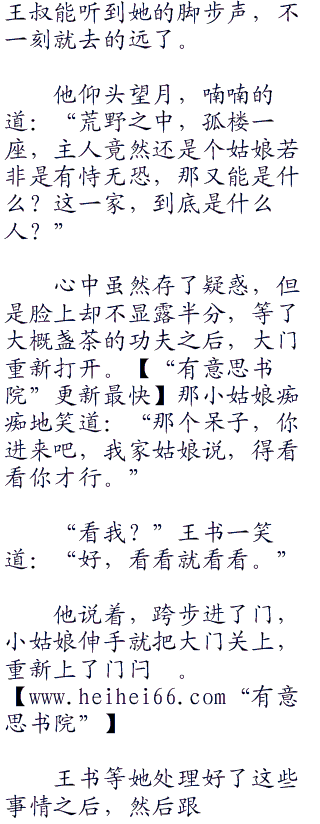 王叔能听到她的脚步声，不
一刻就去的远了。
他仰头望月，喃喃的
道：“荒野之中，孤楼一
座，主人竟然还是个姑娘若
非是有恃无恐，那又能是什
么？这一家，到底是什么
人？”
心中虽然存了疑惑，但
是脸上却不显露半分，等了
大概盏茶的功夫之后，大门
重新打开。【“有意思书
院”更新最快】那小姑娘痴
痴地笑道：“那个呆子，你
进来吧，我家姑娘说，得看
看你才行。”
“看我？”王书一笑
道：“好，看看就看看。”
他说着，跨步进了门，
小姑娘伸手就把大门关上，
重新上了门闩 。
【www.heihei66.com“有意
思书院”】
王书等她处理好了这些
事情之后，然后跟